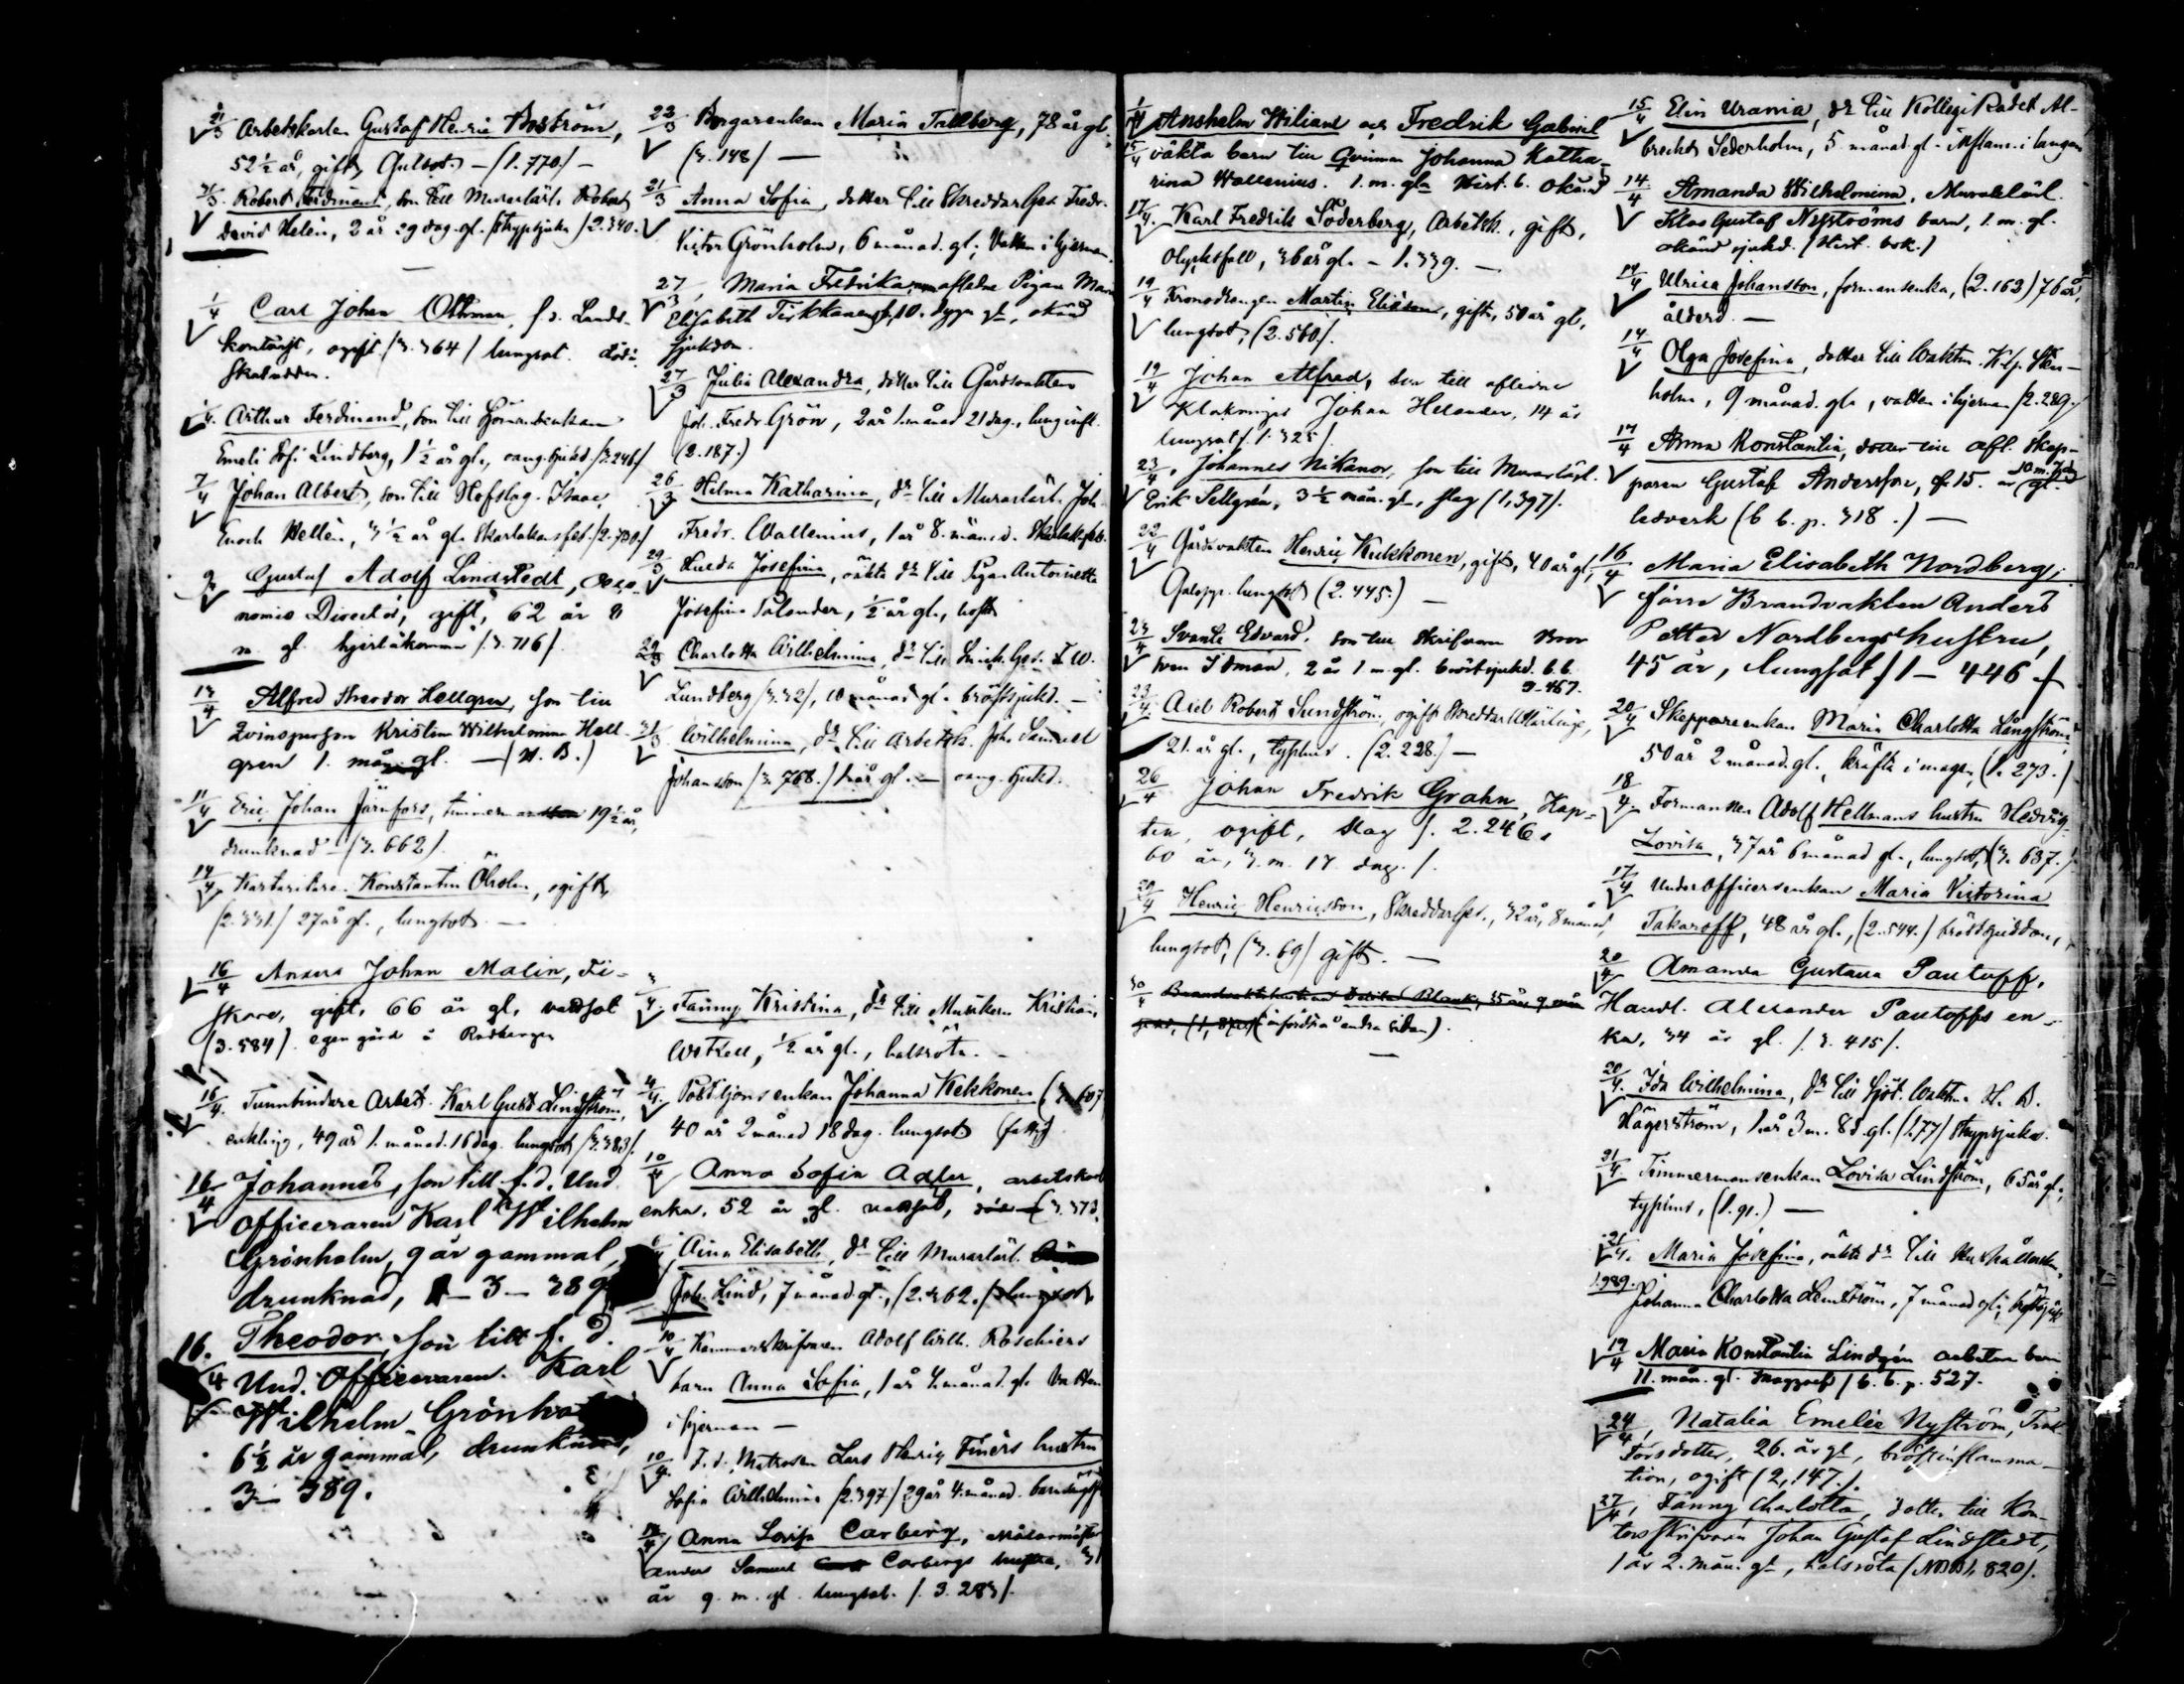 21/3 Arbetskarlen Gustaf Henric Boström,
52 1/2 år, gift, Gulsot - (1.770) -
31/3. Robert Ferdinand, son till Murarlärl. Robert
David Helén, 2 år 29 dag. gl. strypsjuka (2.340.
1/4 Carl Johan Öhman, f.d. Lands-
kontorist, ogift (3.364) lungsot.
Skatudden.
Arthur Ferdinand, son till
Emeli Sofi Lindberg, 1 1/2 år gl., oang. sjukd. (3.246)
7/4 Johan Albert, son till Hofslag. Isaac
Enoch Hellén, 3 1/2 år gl. Skarlakansfeb. (2.700.)
Gustaf Adolf Lindstedt, Oeko-
nomie Director, gift, 62 år 8
m. gl. hjertåkomma (3.716)
13/4 Alfred Theodor Hellgren, son till
Qvinsperson Kristina Wilhelmina Hell-
gren 1. mån. gl. - (H.B.)
11/4 Eric Johan Järnfors, timmerman 19 1/2 år,
drunknad - (3.662)
14/4 Konstantin Öholm, ogift,
(2.331.) 27 år gl., lungsot. -
16/4 Anders Johan Malin, Fi-
skare, gift, 66 år gl, vattsot
(3.584) egen gård å Rödbergen
16/4. Tunnbindare Arbet. Karl Gust. Lindström,
enkling, 49 år 1. månad. 16 dag. lungsot (3.383).
16/4 Johannes, son till f.d. Und.
officeraren Karl Wilhelm
Grönholm, 9 år gammal,
drunknad, - 3 - 389
16./4 Theodor, son till f. d.
Und. Officeraren Karl
Wilhelm Grönho
6 1/2 år gammal, drunknad,
3 - 389.
22/3 Borgarenkan Maria Tallberg, 78 år gl.
(3.148) -
21/3 Anna Sofia, dotter till Skreddar Ges. Fredr.
Victor Grönholm, 6 månad. gl., Vatten i hjernan.
27/3, Maria Fredrika, aflidna Pigan Maria
Elisabeth Tirkkanens, 10. dygn gl., okänd
sjukdom.
27/3 Julia Alexandra, dotter till Gårdsvakten
Joh. Fredr. Grön, 2 år 1 månad 21 dag., lunginfl.
(2.187.)
26/3 Hilma Katharina, dr till Murarlärl. Joh.
Fredr. Wallenius, 1 år 8. månad. Skarlak.feb.
29/3 Hulda Josefina, oäkta dr till Pigan Antoinetta
Josefina Sålander, 1/2 år gl., host
29/3 Charlotta Wilhelmina, dr till Snick. Ges. F.W.
Lundberg (3.32), 10 månad gl. bröstsjukd. -
31/3 Wilhelmina, dr till Arbetsk. Joh. Samuel
Johansson (3.768.) 1 år gl. - oang. sjukd.
/4. Fanny Kristina, dr till Musikern Kristian
1/2 år gl., halsröta. -
4/4. Postiljons enkan Johanna Kekkonen
40 år 2 månad 18 dag. lungsot (fattig)
10/4 Anna Sofia Adler, arbetskarls
enka, 52 år gl. vattsot,
6/4 Aina Elisabeth, dr till Murarlärl.
Joh. Lind, 7 månad gl., (2.362.) lungsot
10/4 Kammarskrifvaren Adolf Wilh. Roschiers
barn Anna Sofia, 1 år 4. månad. gl. Vatten
i hjernan -
10/4. F.d. Matrosen Lars Henric Finérs hustru
Sofia Wilhelmina (2.397) 29 år 4. månad.
Anna Lovisa Carberg, Målarmäster
Anders Samuel Carbergs hustru,
år 9. m. gl. lungsot. (3.283).
Anshelm Wiliam och Fredrik Gabriel
oäkta barn till Qvinnan Johanna Katha-
rina Wallenius. 1. m. gla. Hist. b. okänd
17/4. Karl Fredrik Söderberg, Arbetsk., gift,
Olycksfall, 36 år gl. - 1.339. -
19/4 Kronodrängen Martin Eliäson, gift, 50 år gl,
lungsot, (2.560).
19/4 Johan Alfred, son till aflidne
Johan Helander, 14 år
lungsot (1.325).
23/4, Johannes Nikanor, son till Murarlärl.
Erik Sellgrén, 3 1/2 mån. gl., slag (1,397).
22/4 Gårdsvakten Henric Kukkonen, gift, 40 år gl,
Galopp. lungsot (2.445.) -
23/4 Svante Edvard, son till Skrifvaren
Idman, 2 år 1 m. gl. bröstsjukd. b.b.
3-457.
23/4. Axel Robert Sundström, ogift Skreddar Lärling,
21. år gl., typhus. (2.228.) -
26/4 Johan Fredrik Grahn, Kap-
ten, ogift, slag (. 2.246.
60 år, 3. m. 17 dag. (.
29/4 Henric Henricsson, Skreddar Ges., 32 år, 8 månad,
lungsot, (3.69) gift. -
30/4 Brandvaktshustrun Blank, 35 år 9 mån
(införd på andra sidan).
15/4 Elin Urania, dr till Kollegi Rådet Al-
brecht Sederholm, 5. månad. gl. Inflam. i lungan
14/4 Amanda Wilhelmina, Murarelärl.
Klas Gustaf Nyströms barn, 1. m. gl.
okänd sjukd. (Hist. bok.)
14/4 Ulrica Johansson, formansenka, (2.163) 76 år,
ålderd. -
14/4 Olga Josefina, dotter till Waktm. K.
holm, 9 månad. gl., vatten i hjernan (2.289.)
17/4 Anna Konstantia, dotter till afl. Skep-
paren Gustaf Andersson, 15. år 10 m. gl.
ledverk (b b. p. 318.) -
16/4 Maria Elisabeth Nordberg,
förre Brandvakten Anders
Petter Nordbergs hustru,
45 år, lungsot (1 - 446)
20/4 Skepparenkan Maria Charlotta Långström,
50 år 2 månad. gl., kräfta i magen, (1. 273.)
18/4. Formannen Adolf Hellmans hustru Hedvig
Lovisa, 37 år 6 månad gl., lungsot, (3. 637.)
17/4 Underofficersenkan Maria Victorina
Takaroff, 48 år gl., (2.544.) bröstsjukdom,
20/4 Amanda Gustava Pautoff,
Handl. Alexander Pautoffs en-
ka, 34 år gl. (. 3. 415).
20/4. Ida Wilhelmina, dr till Sjöt. Waktm. H. B.
Hägerström, 1 år 3 m. 8 d. gl. (1.77) strypsjuka.
21/4. Timmermansenkan Lovisa Lindström, 65 år gl,
typhus, (1.91.) -
21/4. Maria Josefina, oäkta dr till
1.989. Johanna Charlotta Lemström, 7 månad gl,
19/4 Maria Konstantia Lindgrén arbetare barn
11. mån. gl. (b. b. p. 527.
24/4, Natalia Emelie Nyström,
dotter, 26. år gl, bröstinflamma-
tion, ogift (2,147.).
27/4, Fanny Charlotta, dotter till Kon-
torsskrifvaren Johan Gustaf Lindstedt,
1 år 2. mån. gl, halsröta (N.B.B. 1, 820).